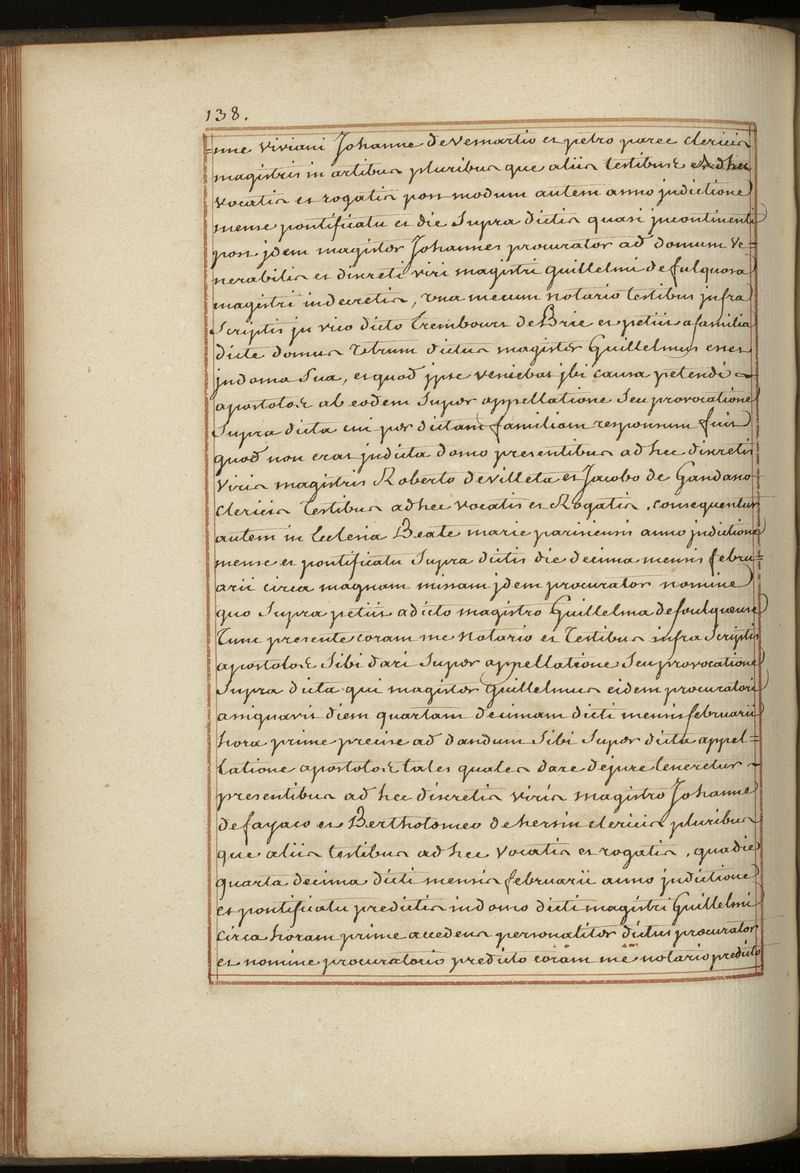 138.
=nne viviani Johanne de Vernartio et petro paree clericis
magistris in artibus pluribus que aliis testibus ad hec
vocatis et rogatis post modum autem anno jndictione
mense pontificatu et die Supra dictis quasi jncontinenti
post jdem magister Johannes procurator ad domum Ve=
nerabilis et discreti viri magistri guillelmi de fulquosa
magistri in decretis, vna mecum notario testibus jnfra
Scriptis jn vico dicto Erembourt de Brie et petiit a familia
dicte domus Utrum dictus magister Guillelmus esset
jn domo Sua, et quod jpse veniebat jbi causa petendi ~
apostolos ab eodem Super appellatione Seu provocatione
Supra dicta cui per dictam familiam responsum fuit
quod non erat jn dicta domo presentibus ad hec discretis
Viris magistris Roberto de Villeta et Jacobo de Gandano
Clericis Testibus ad hec vocatis et Rogatis, consequenter
autem in Ecclesia Beate marie parisiensis anno jndictione
mense et pontificatu Supra dictis die decima mensis febru=
arii circa magnam missam jdem procurator nomine
quo Supra petiit a dicto magistro Guillelmo de foulqueuse
Tunc presente coram me Notario et Testibus infra Scriptis
apostolos Sibi dari Super appellatione Seu provocatione
Supra dicta qui magister Guillelmus eidem procuratori
assignavit diem quartam decimam dicti mensis februarii
hora prime precise ad dandum Sibi Super dicta appel=
latione apostolos tales quales dare de jure teneretur ~
presentibus ad hec discretis viris magistro Johanne
de fayaco et Bertholomeo de hersin clericis pluribus
que aliis testibus ad hec Vocatis et rogatis, qua die
quarta decima dicti mensis februarii anno jndictione
et pontificatu predictis in domo dicti magistri Guillelmi
Circa horam prime accedens personaliter dictus procurator
et nomine procuratorio predicto coram me notario predicto